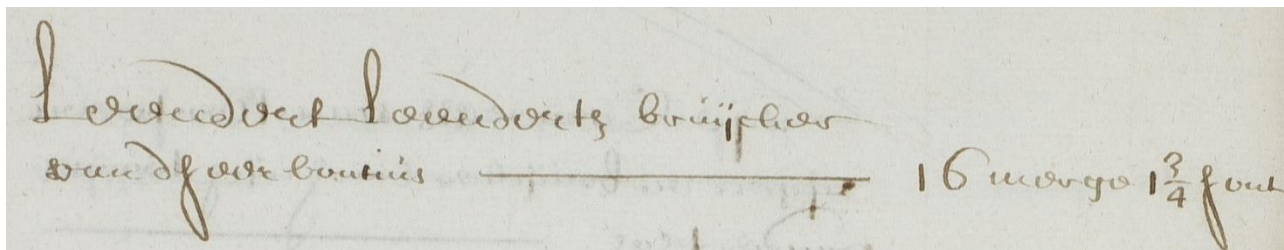 Leendert Leendertz bruijcker
van dheer bontius 16 merge 1 3/4 hont